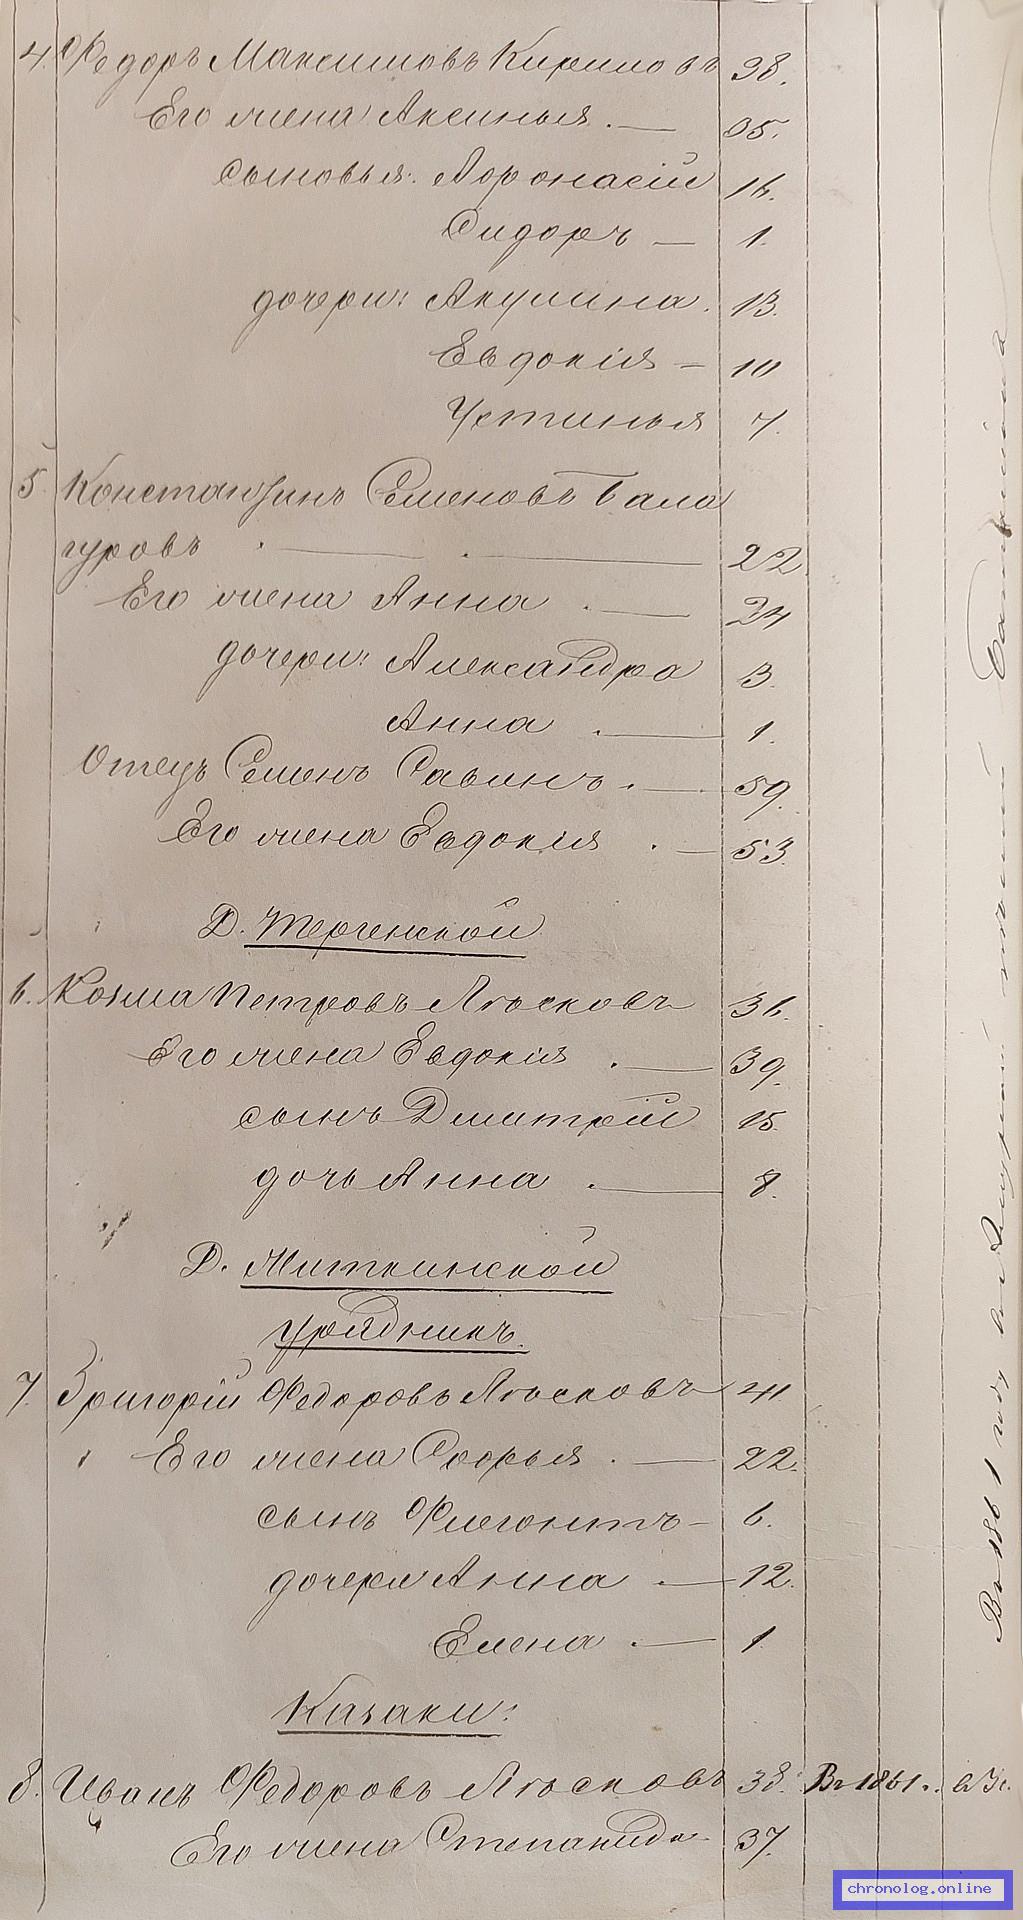 4. Федоръ Максимовъ Кириловъ 38.
Его жена Аксинья. — 35.
сыновья: Афонасій 16.
Сидоръ — 1.
дочери: Акулина. 13.
Евдокія — 10
Устинья 7.
5 Константинъ Семеновъ Бала
гуровъ . — . — 22
Его жена Анна . — 24
дочери: Александра 3.
Анна . — 1.
Отецъ Семенъ Савинъ . — 59.
Его жена Евдокія . — 53.
Д. Тергенской
6. Козма Петровъ Яськовъ 36.
Его жена Евдокія . — 39.
сынъ Дмитрій 15.
дочь Анна . — 8.
Д. Миткинской
урядникъ.
7. Григорій Федоровъ Яськовъ 41.
Его жена Софья . — 22.
сынъ Флегонтъ — 6.
дочери Анна . — 12.
Елена . — 1
Казаки:
8. Иванъ Федоровъ Яськовъ 38. Въ 1861.
Его жена Степанида 37.
Въ 1861 году въ Амурской
chronolog.online